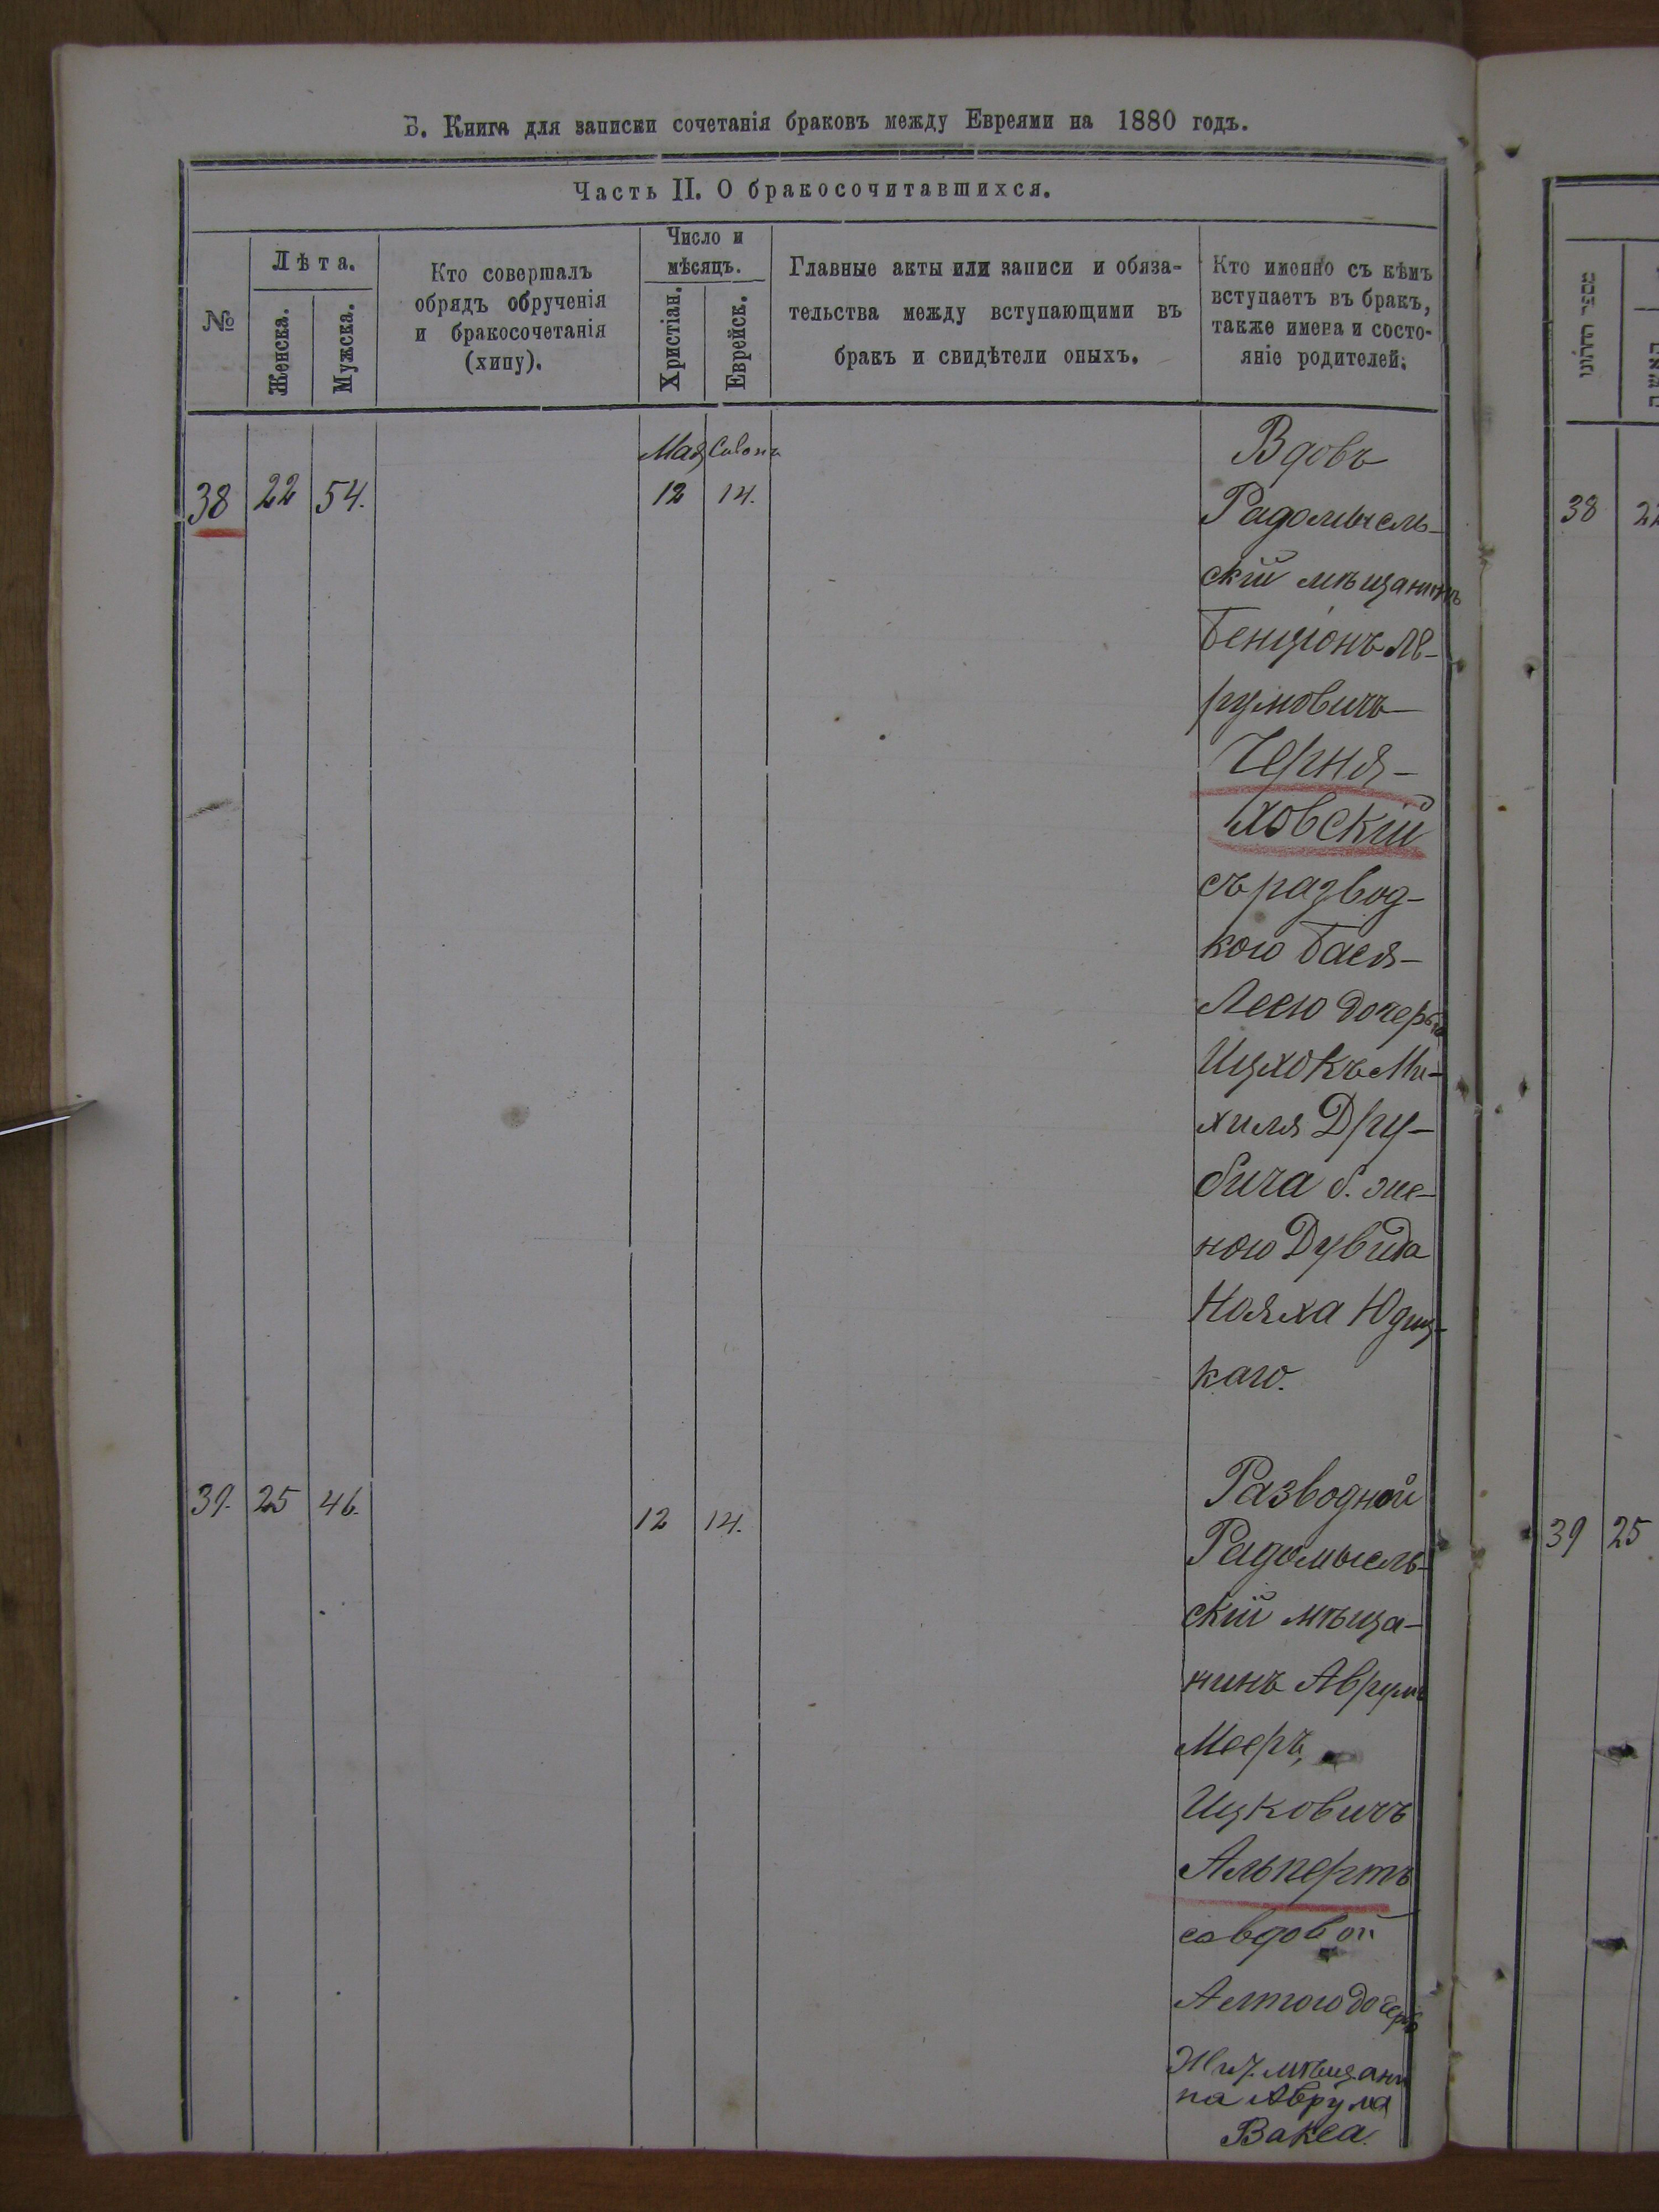 Б. Книга для записки сочетанія браковъ между Евреями на 1880 годъ.
Часть II. О бракосочитавшихся.
№
Лѣта.
Женска.
Мужска.
Кто совершалъ
обрядъ обрученія
и бракосочетанія
(хипу).
Число и
мѣсяцъ.
Христіан.
Еврейск.
Главные акты или записи и обяза-
тельства между вступающими въ
бракъ и свидѣтели оныхъ.
Кто именно съ кѣмъ
вступаетъ въ бракъ,
также имена и состо-
яніе родителей:
Мая
38 22 54. 12 14.
Вдовъ
Радомысль-
скій мѣщанинъ
Бенціонъ Ав-
румовичъ
Черня-
ховскій
съ развод-
кою Бася-
Леею дочерью
Ицхокъ Ми-
хиля Дру-
бича б. же-
ною Дувида
Нояха Юдиц-
каго.
39. 25 46. 12 14.
Разводной
Радомысль-
скій мѣща-
нинъ Аврумъ
Мееръ,
Ицковичъ
Альпертъ
со вдовой
Алтою дочерь
Жит. мѣщани
на Аврума
Вакса.
38
39 25